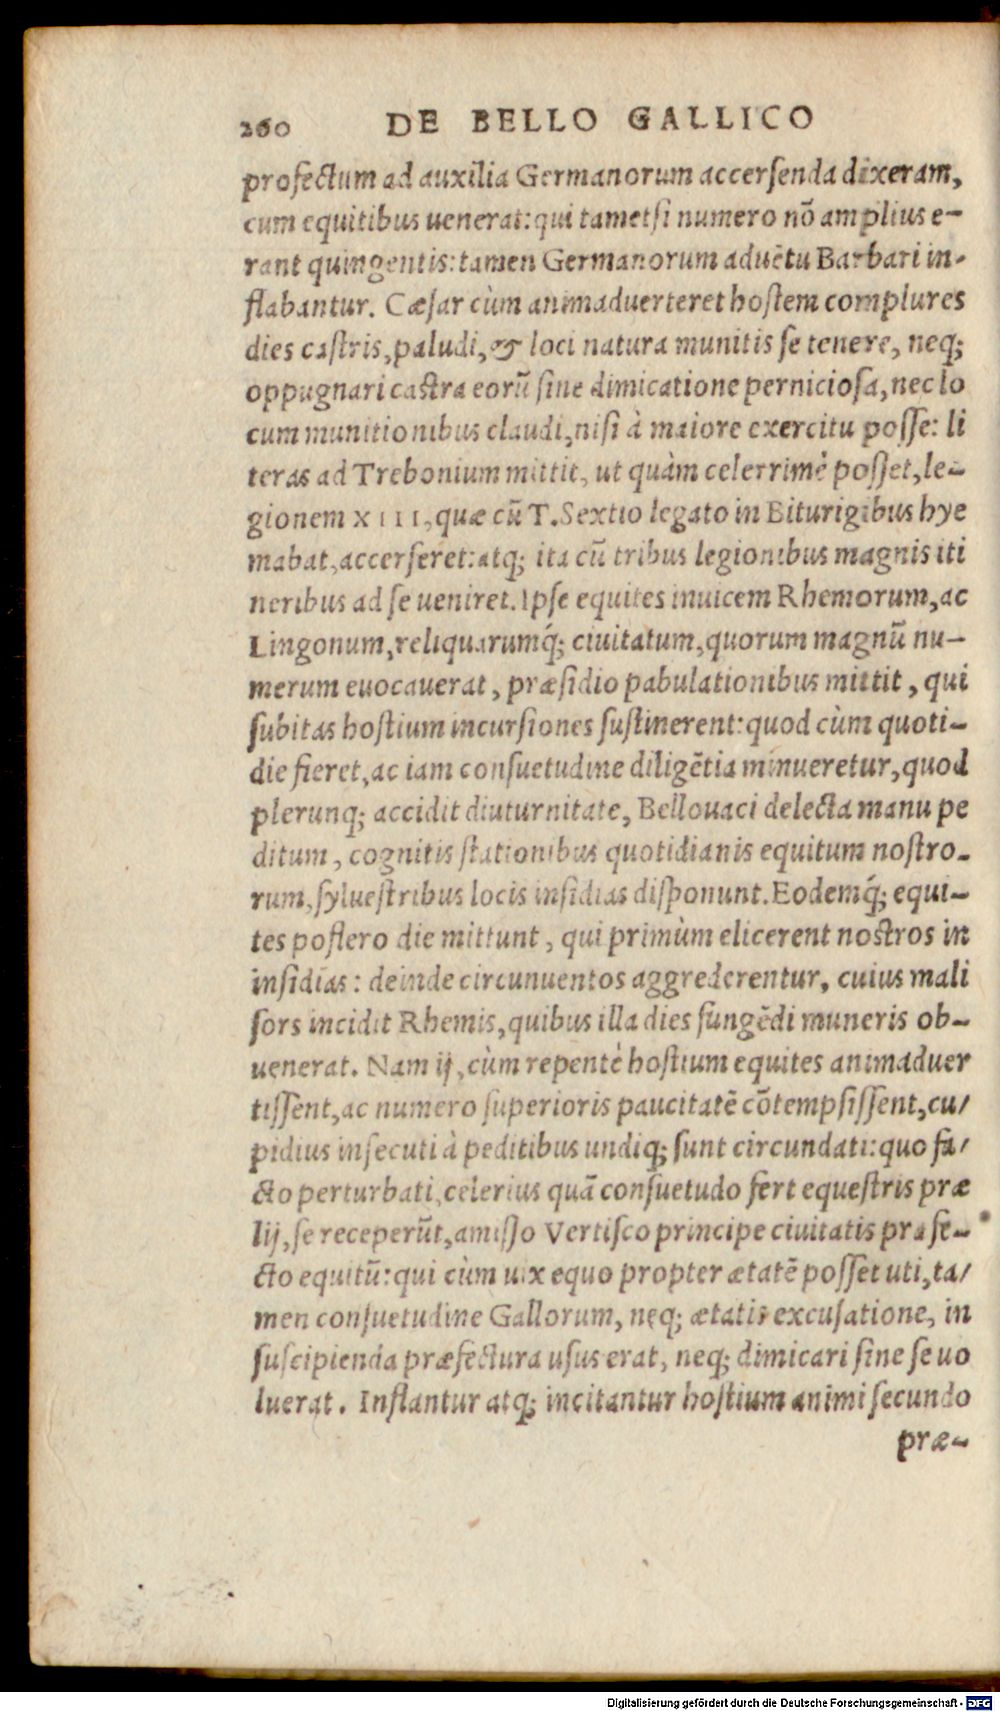 260 DE BELLO GALLICO
profectum ad auxilia Germanorum accersenda dixeram,
cum equitibus uenerat: qui tametsi numero nõ amplius e-
rant quingentis: tamen Germanorum aduẽtu Barbari in-
flabantur. Cæsar cùm animaduerteret hostem complures
dies castris, paludi, & loci natura munitis se tenere, neq;
oppugnari castra eorũ sine dimicatione perniciosa, nec lo
cum munitionibus claudi, nisi à maiore exercitu posse: li
teras ad Trebonium mittit, ut quàm celerrimè posset, le-
gionem XIII, quæ cũ T. Sextio legato in Biturigibus hye
mabat, accerseret: atq; ita cũ tribus legionibus magnis iti
neribus ad se ueniret. Ipse equites inuicem Rhemorum, ac
Lingonum, reliquarumq́; ciuitatum, quorum magnũ nu-
merum euocauerat, præsidio pabulationibus mittit, qui
subitas hostium incursiones sustinerent: quod cùm quoti-
die fieret, ac iam consuetudine diligẽtia minueretur, quod
plerunq; accidit diuturnitate, Bellouaci delecta manu pe
ditum, cognitis stationibus quotidianis equitum nostro-
rum, syluestribus locis insidias disponunt. Eodemq́; equi-
tes postero die mittunt, qui primùm elicerent nostros in
insidias: deinde circunuentos aggrederentur, cuius mali
sors incidit Rhemis, quibus illa dies fungẽdi muneris ob-
uenerat. Nam ij, cùm repentè hostium equites animaduer
tissent, ac numero superioris paucitatẽ cõtempsissent, cu-
pidius insecuti à peditibus undiq; sunt circundati: quo fa-
cto perturbati, celerius quã consuetudo fert equestris præ
lij, se receperũt, amisso Vertisco principe ciuitatis præfe-
cto equitũ: qui cùm uix equo propter ætatẽ posset uti, ta-
men consuetudine Gallorum, neq; ætatis excusatione, in
suscipienda præfectura usus erat, neq; dimicari sine se uo
luerat. Inflantur atq; incitantur hostium animi secundo
præ-
Digitalisierung gefördert durch die Deutsche Forschungsgemeinschaft - DFG